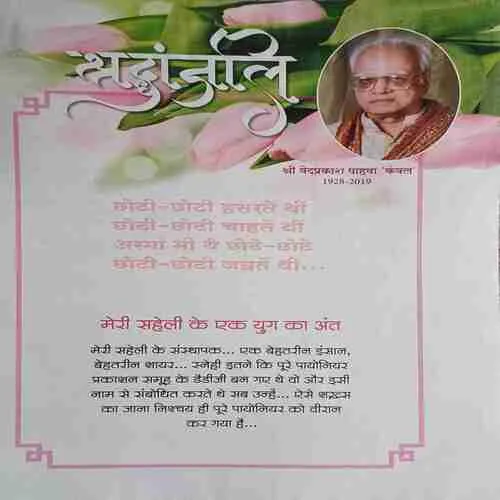 श्रद्धांजलि
श्री वेदप्रकाश पाहवा 'कंवल'
1928-2019
छोटी-छोटी हसरतें थीं
छोटी-छोटी चाहतें थीं
अरमां भी थे छोटे-छोटे
छोटी-छोटी जन्नतें थीं...
मेरी सहेली के एक युग का अंत
मेरी सहेली के संस्थापक... एक बेहतरीन इंसान,
बेहतरीन शायर... स्नेही इतने कि पूरे पायोनियर
प्रकाशन समूह के डैडीजी बन गए थे वो और इसी
नाम से संबोधित करते थे सब उन्हें... ऐसे शख़्स
का जाना निश्‍चय ही पूरे पायोनियर को वीरान
कर गया है...